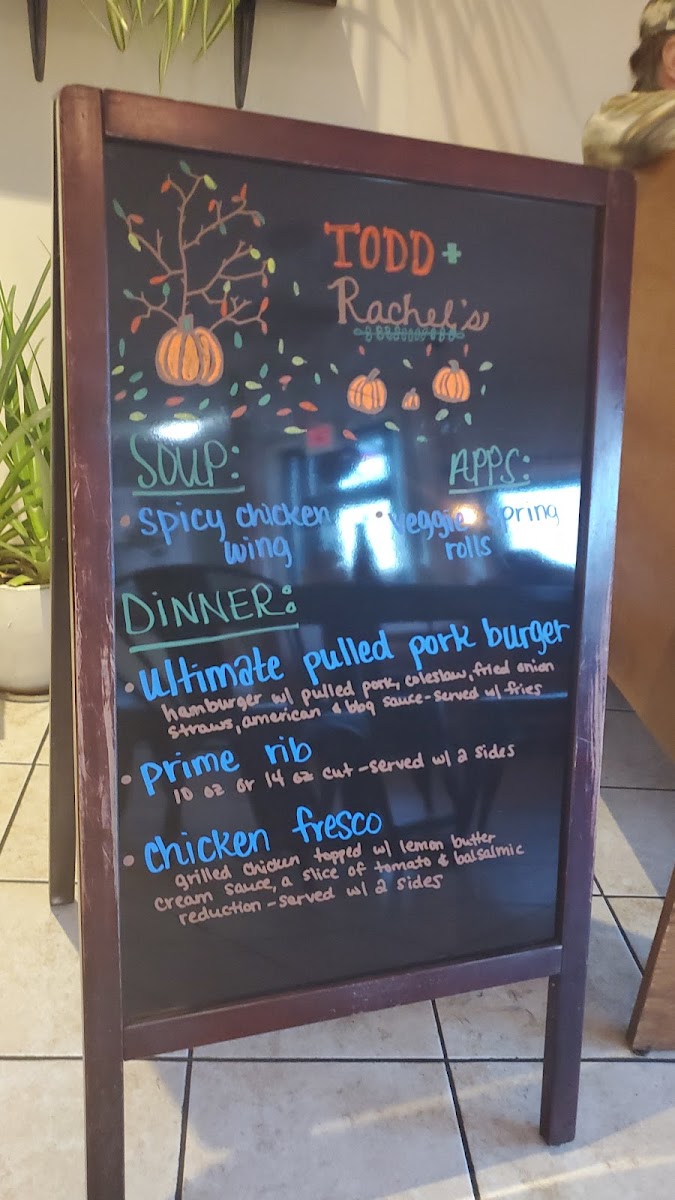 TODD +
Rachel's
SOUP:
• spicy chicken
wing
APPS:
• veggie spring
rolls
DINNER:
• ultimate pulled pork burger
hamburger w/ pulled pork, coleslaw, fried onion
straws, american & bbq sauce - served w/ fries
• prime rib
10 oz or 14 oz cut - served w/ 2 sides
• chicken fresco
grilled chicken topped w/ lemon butter
cream sauce, a slice of tomato & balsalmic
reduction - served w/ 2 sides